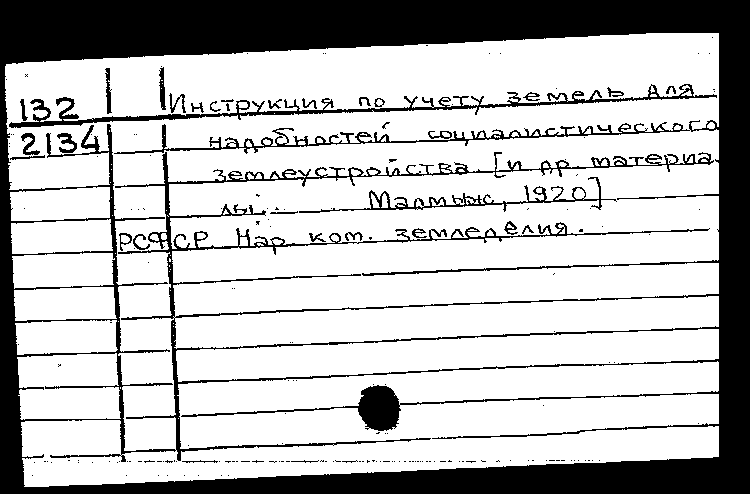 132 Инструкция по учету земель для
2134 надобностей социалистического
землеустройства. [и др. материа
лы. Малмыж, 1920]
РСФСР. Нар. ком. земледелия.